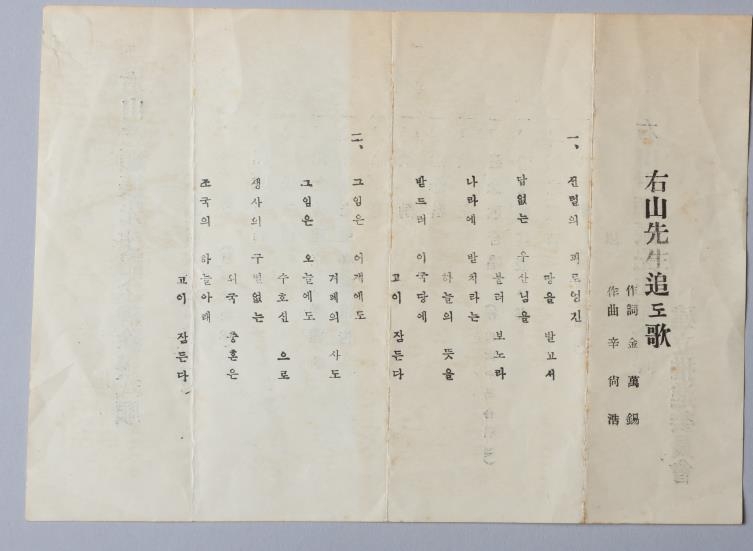 右山先生追도歌
作詞 金萬錫
作曲 辛尙浩
一、 선렬의 피로엉긴
땅을 밟고서
답없는 우산님을
불러 보노라
나라에 받치라는
하늘의 뜻을
받드러 이국땅에
고이 잠든다
二、 그임은 어제에도
겨레의 사도
그임은 오늘에도
수호신 으로
생사의 구별없는
외국 충혼은
조국의 하늘아래
고이 잠든다